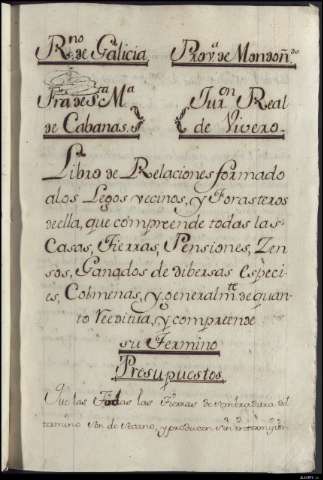 R.no de Galicia Prov.a de Mondoñ.do
Fra de S.ta M.a Jur.on Real
de Cabanas. de Vivero.
Libro de Relaciones formado
alos Legos vecinos, y Forasteros
de ella, que compreende todas las
Casas, Tierras, Pensiones, Zen
sos, Ganados de dibersas especi
es, Colmenas, y general m.te de quan
to Reeditua, y compreende
su Termino
Presupuestos
Que las Todas las Tierras de sembradura del
termino son de secano, y producen sin intermision